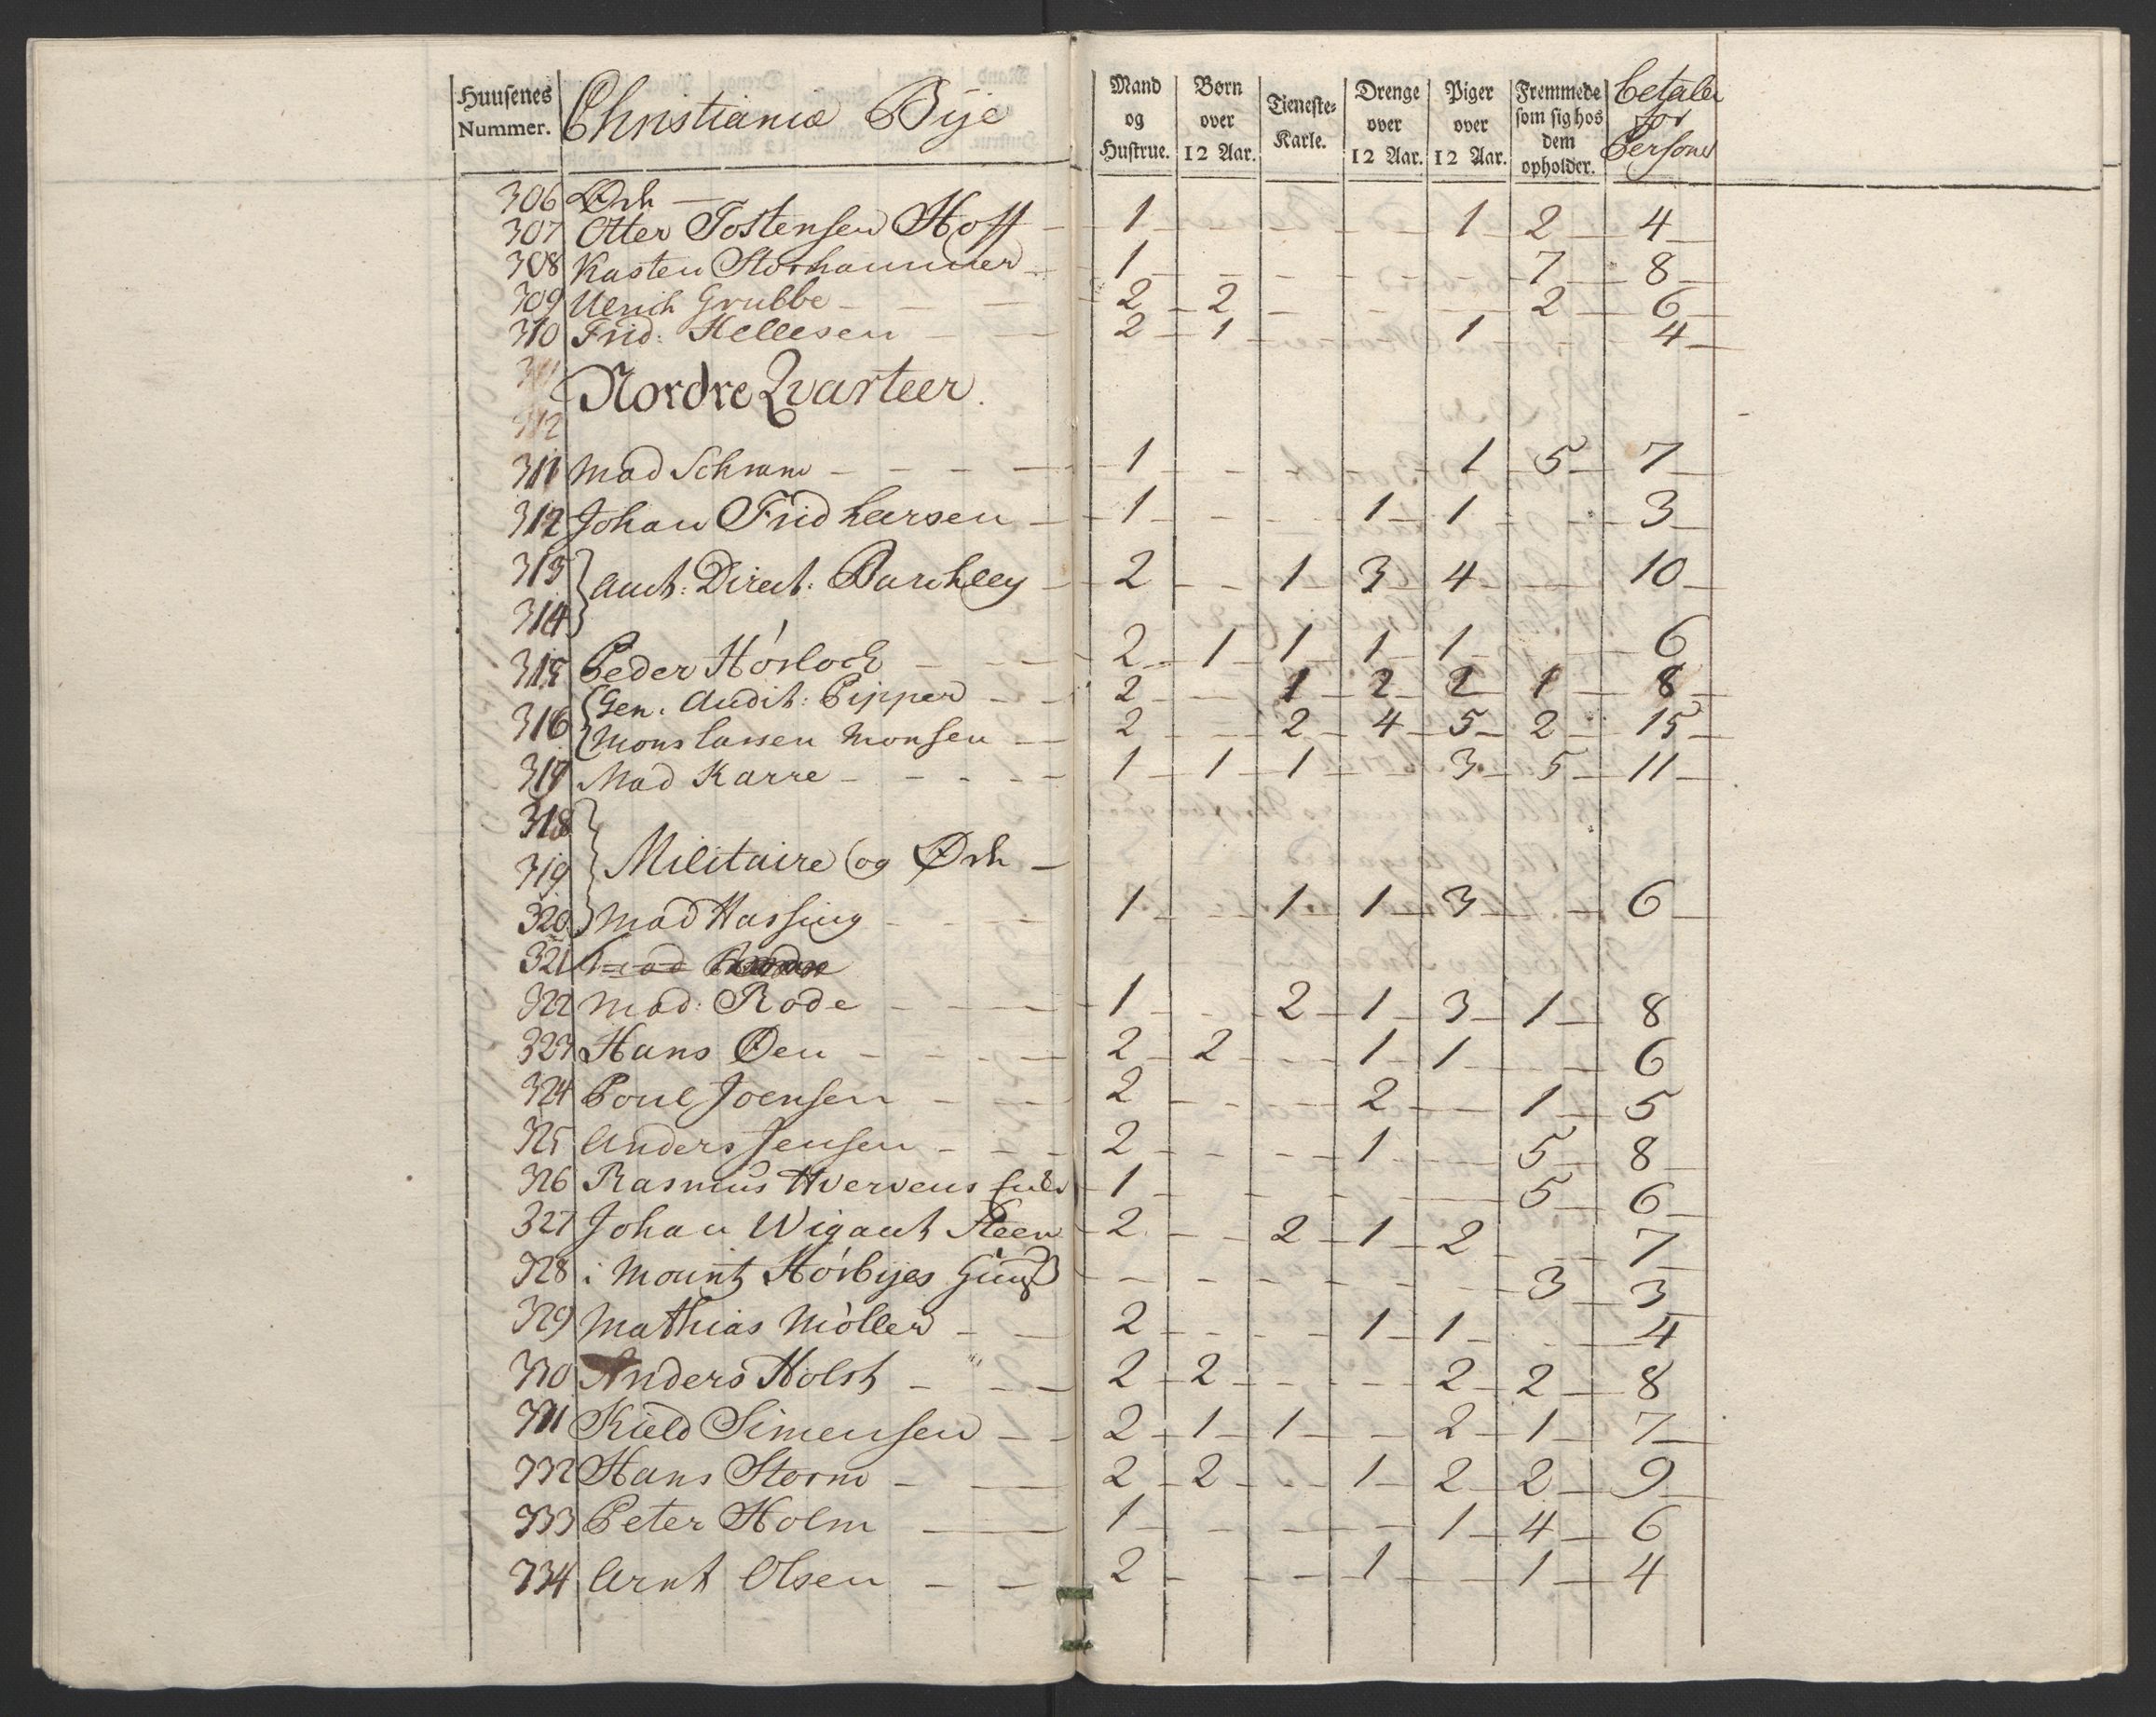 Huusenes Nummer. Christiania Bÿe Mand og Hustrue. Børn over 12 Aar. Tieneste-Karle. Drenge over 12 Aar. Piger over 12 Aar. Fremmede som sig hos dem opholder. betaler for Persone
306 Ødh —
307 Otter Tostensen Hoff 1 1 2 4
308 Kasten Storhammer 1 7 8
309 Ulrich Grubbe 2 2 2 6
310 Frid: Hellesen 2 1 1 4
311
Nordre Qvarteer.
312
311 Mad Schram 1 1 5 7
312 Johan Frid Larsen 1 1 1 3
313
Auct: Direct: 2 1 3 4 10
314
315 Peder Hörloch 2 1 1 1 1 6
Gen. Audit: Pipper 2 1 2 2 1 8
316
Mons Lassen Monsen 2 2 4 5 2 15
317 Mad Karre 1 1 1 3 5 11
318
Militaire og Ødh
319
320 Mad Hassing 1 1 1 3 6
321
322 Mad: Rode 1 2 1 3 1 8
323 Hans Øen 2 2 1 1 6
324 Poul Joensen 2 2 1 5
325 Anders Jensen 2 1 5 8
326 Rasmus Hvervens 1 5 6
327 Johan Wigant Steen 2 2 1 2 7
328 i Hörbÿes 3 3
329 Mathias Möller 2 1 1 4
330 Anders Holst 2 2 2 2 8
331 Kield Simensen 2 1 1 2 1 7
332 Hans Storm 2 2 1 2 2 9
333 Peter Holm 1 1 4 6
334 Arnt Olsen 2 1 1 4